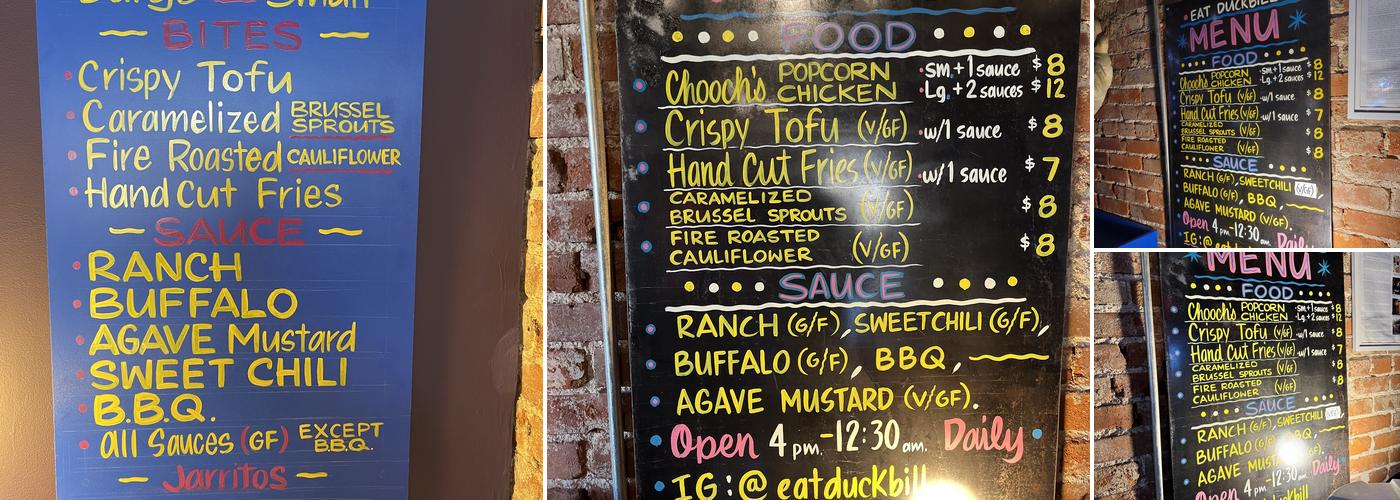 Large Small
BITES
Crispy Tofu
Caramelized BRUSSEL SPROUTS
Fire Roasted CAULIFLOWER
Hand Cut Fries
SAUCE
RANCH
BUFFALO
AGAVE Mustard
SWEET CHILI
B.B.Q.
all Sauces (GF) EXCEPT B.B.Q.
Jarritos
FOOD
Chooch's POPCORN CHICKEN
• Sm. + 1 sauce $8
• Lg. + 2 sauces $12
Crispy Tofu (V/GF) • w/1 sauce $8
Hand Cut Fries (V/GF) • w/1 sauce $7
CARAMELIZED BRUSSEL SPROUTS (V/GF) $8
FIRE ROASTED CAULIFLOWER (V/GF) $8
SAUCE
RANCH (G/F), SWEETCHILI (G/F),
BUFFALO (G/F), BBQ,
AGAVE MUSTARD (V/GF).
Open 4pm.-12:30am. Daily
IG:@eatduckbill
• EAT DUCKBILL
MENU
FOOD
Chooch's POPCORN CHICKEN
• Sm. + 1 sauce $8
• Lg. + 2 sauces $12
Crispy Tofu (V/GF) • w/1 sauce $8
Hand Cut Fries (V/GF) • w/1 sauce $7
CARAMELIZED BRUSSEL SPROUTS (V/GF) $8
FIRE ROASTED CAULIFLOWER (V/GF) $8
SAUCE
RANCH (G/F), SWEETCHILI (V/GF),
BUFFALO (G/F), BBQ,
AGAVE MUSTARD (V/GF).
Open 4pm-12:30am. Daily
IG:@eatduckbill
MENU
FOOD
Chooch's POPCORN CHICKEN
• Sm. + 1 sauce $8
• Lg. + 2 sauces $12
Crispy Tofu (V/GF) • w/1 sauce $8
Hand Cut Fries (V/GF) • w/1 sauce $7
CARAMELIZED BRUSSEL SPROUTS (V/GF) $8
FIRE ROASTED CAULIFLOWER (V/GF)
SAUCE
RANCH (G/F), SWEETCHILI
BUFFALO (G/F), BBQ,
AGAVE
Open Daily